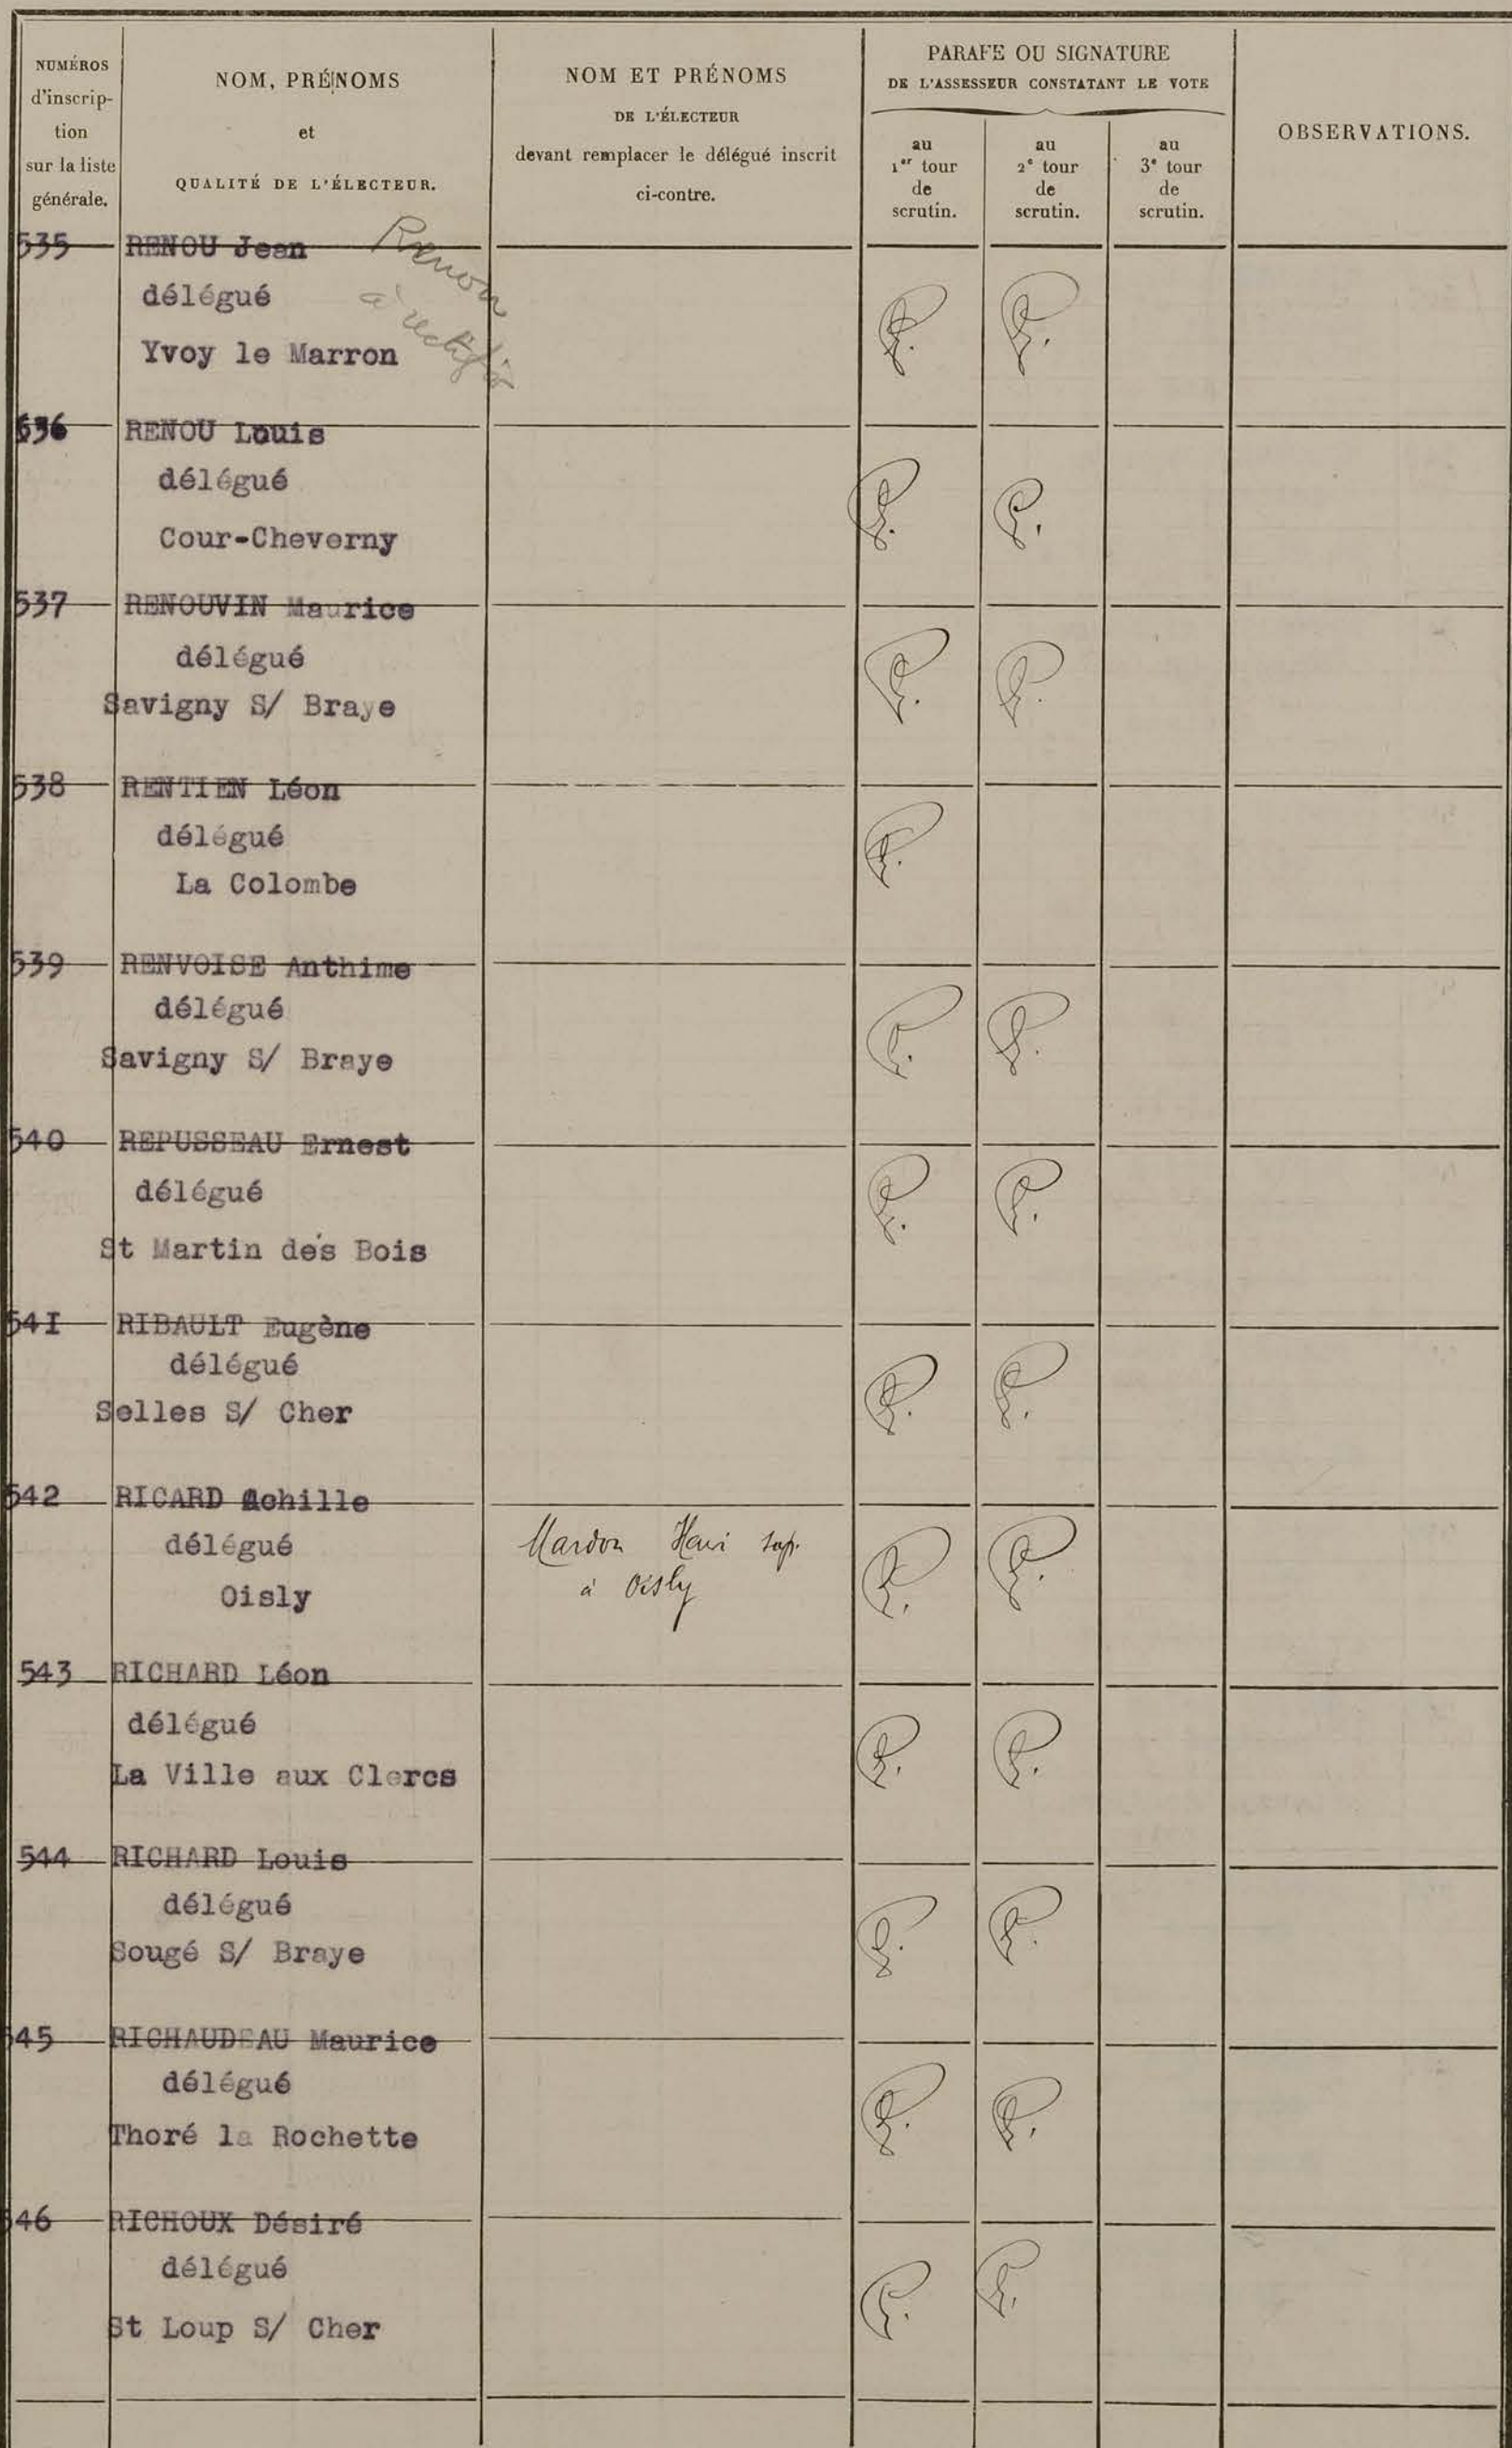 NUMÉROS
d'inscrip-
tion
sur la liste
générale.
NOM, PRÉNOMS
et
QUALITÉ DE L'ÉLECTEUR.
NOM ET PRÉNOMS
DE L'ÉLECTEUR
devant remplacer le délégué inscrit
ci-contre.
PARAFE OU SIGNATURE
DE L'ASSESSEUR CONSTATANT LE VOTE
au
1er tour
de
scrutin.
au
2e tour
de
scrutin.
au
3e tour
de
scrutin.
OBSERVATIONS.
535 RENOU Jean
Renou
à rectifier
délégué
Yvoy le Marron
536 RENOU Louis
délégué
Cour-Cheverny
537 RENOUVIN Maurice
délégué
Savigny S/ Braye
538 RENTIEN Léon
délégué
La Colombe
539 RENVOISE Anthime
délégué
Savigny S/ Braye
540 REPUSSEAU Ernest
délégué
St Martin des Bois
54I RIBAULT Eugène
délégué
Selles S/ Cher
542 RICARD Achille
délégué Mardon Henri sup.
Oisly à Oisly
543 RICHARD Léon
délégué
La Ville aux Clercs
544 RICHARD Louis
délégué
Sougé S/ Braye
545 RICHAUDEAU Maurice
délégué
Thoré la Rochette
546 RICHOUX Désiré
délégué
St Loup S/ Cher